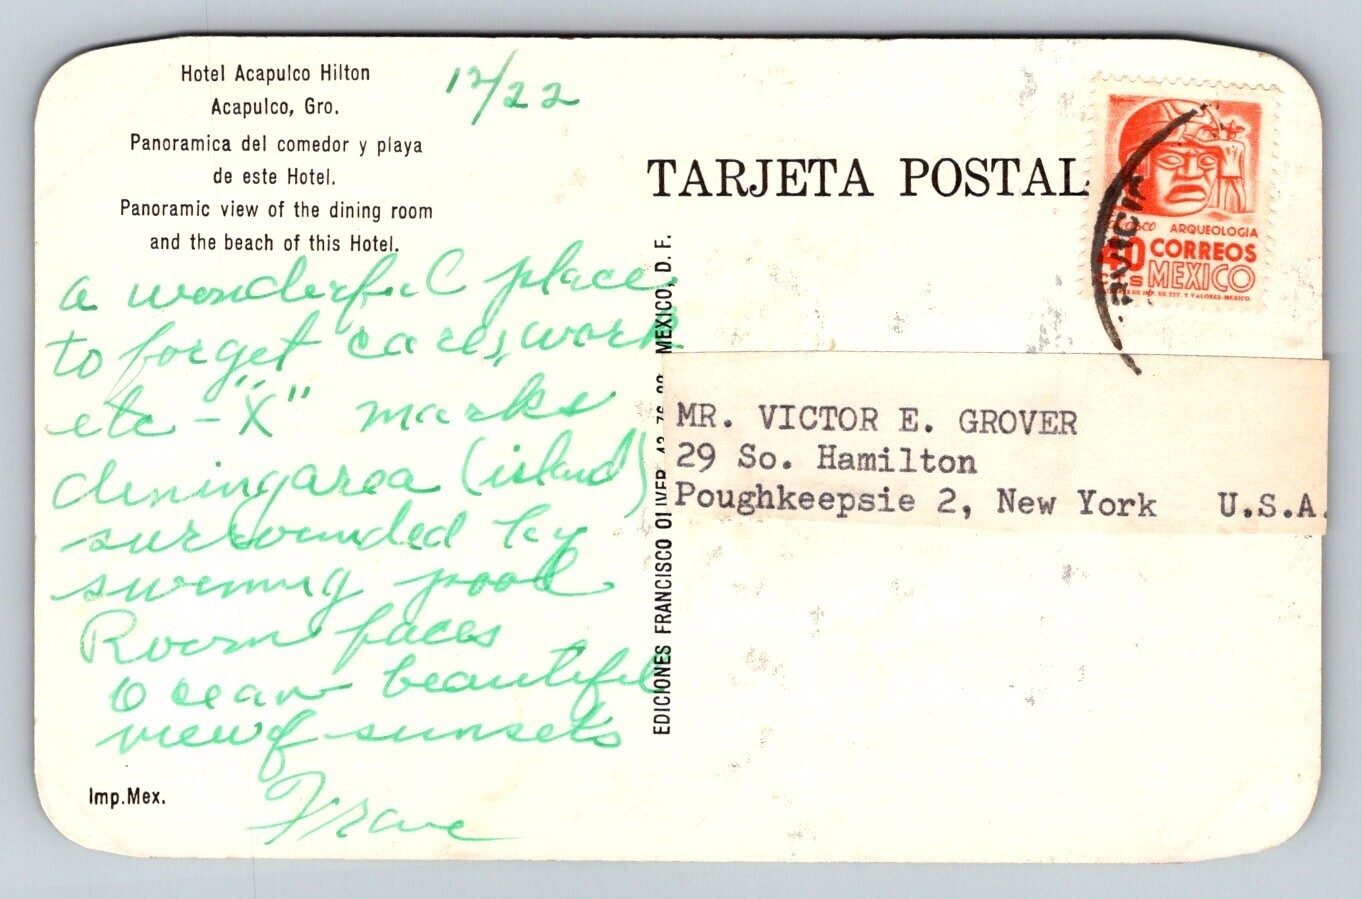 Hotel Acapulco Hilton
Acapulco, Gro.
Panoramica del comedor y playa
de este Hotel.
Panoramic view of the dining room
and the beach of this Hotel.
12/22
a wonderful place
to forget cares, work
etc - "X" marks
dining area (island)
surrounded by
swimmg pool
Room faces
Ocean beautiful
view of sunsets
Imp.Mex.
EDICIONES FRANCISCO OLIVER MEXICO, D. F.
TARJETA POSTAL
ARQUEOLOGIA
40 CORREOS
MEXICO
MR. VICTOR E. GROVER
29 So. Hamilton
Poughkeepsie 2, New York U.S.A.